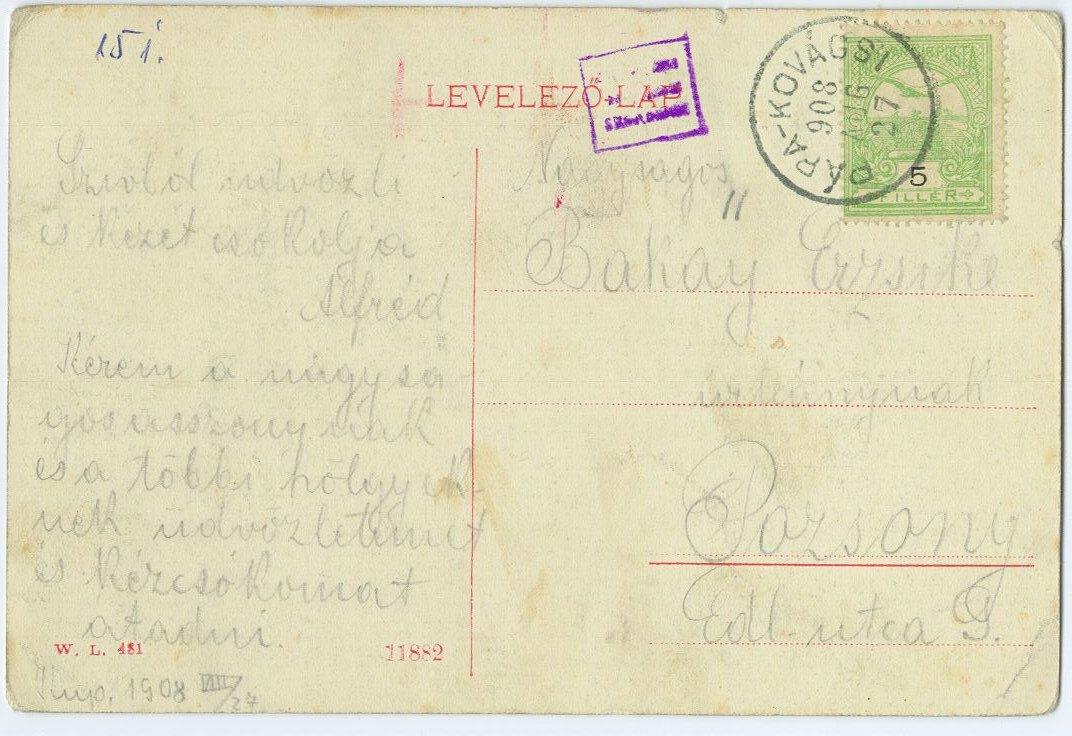 15 i.
LEVELEZŐ-LAP
PÁPA-KOVÁCSI
908
AUG
27
MAGYAR KIR. POSTA
5
FILLÉR
Szivből üdvözli
és kezet csókolja
Alfréd
Kérem a nagysá
gos asszonynak
és a többi hölgyek-
nek üdvözletemet
és kézcsókomat
átadni.
W. L. 481
11882
1908 VIII/27
Nagyságos
Bakay Erzsike
urleánynak
Pozsony
Edl-utca 9.